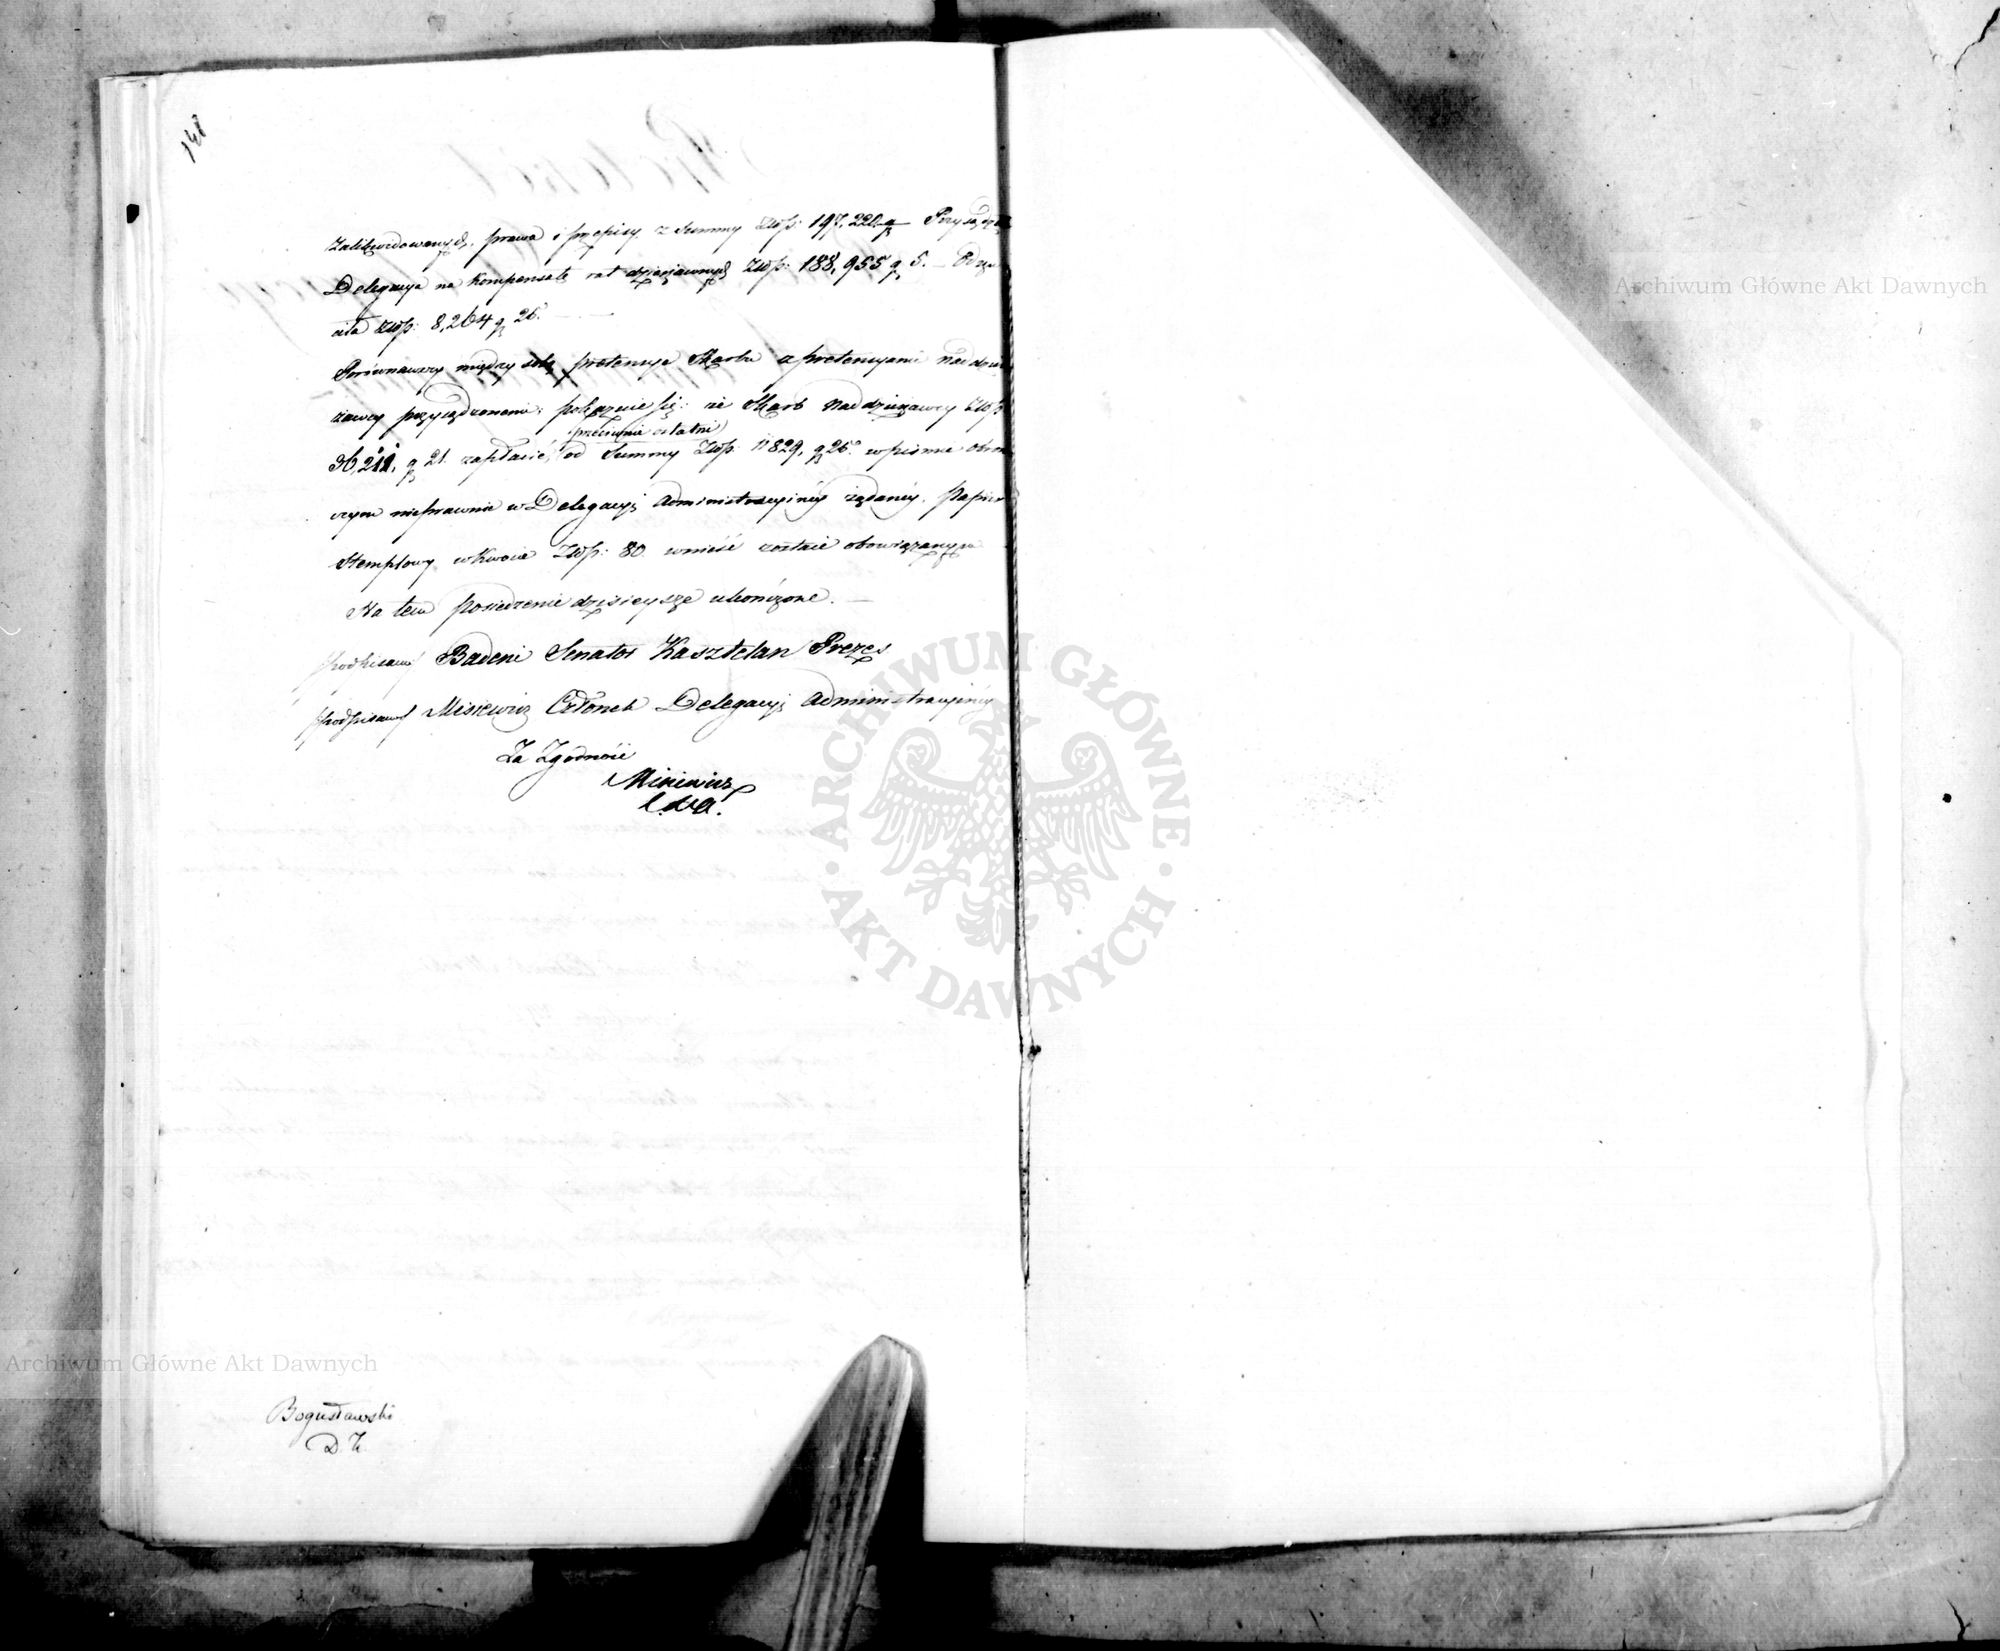 148
zalikwidowanych, prawa i przepisy z Summy Złłp: 197,220 g Przysądziła
Delegacya na kompensatę rat dzierżawnych Złłp: 188,955 g 5. — Odrzu
ciła Złłp: 8,264 g 26. —
Porównawszy między sobą pretensye Skarbu a pretensyami Naddzier
żawcy przysądzonemi; pokazuie się: że Skarb Naddzierżawcy Złłp
g 21. zapłacić, od Summy Złłp: 11829, g 26. w pismie obron
(przeciwnie ostatni)
czym nieprawnie w Delegacyi Administracyiney żądaney. Papier
Stemplowy w kwocie Złłp: 80 wnieść zostaie obowiązanym
Na tem posiedzenie dzisieysze ukończone. —
podpisany Badeni Senator Kasztelan Prezes
podpisany Misiewicz Członek Delegacyi Administracyiney
Za Zgodność
Misiewicz
C. D. A.
Bogusławski
D. Z.
Archiwum Główne Akt Dawnych
Archiwum Główne Akt Dawnych
ARCHIWUM GŁÓWNE
AKT DAWNYCH